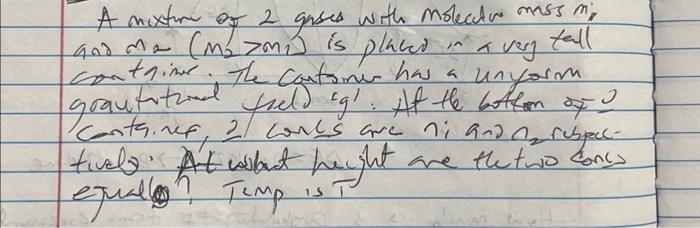 A mixture of 2 gases with molecular mass m1
and m2 (m2 > m1) is placed in a very tall
container. The container has a uniform
gravitational field 'g'. At the bottom of
container, 2 concs are n1 and n2 respec-
tively. At what height are the two concs
equal? Temp is T